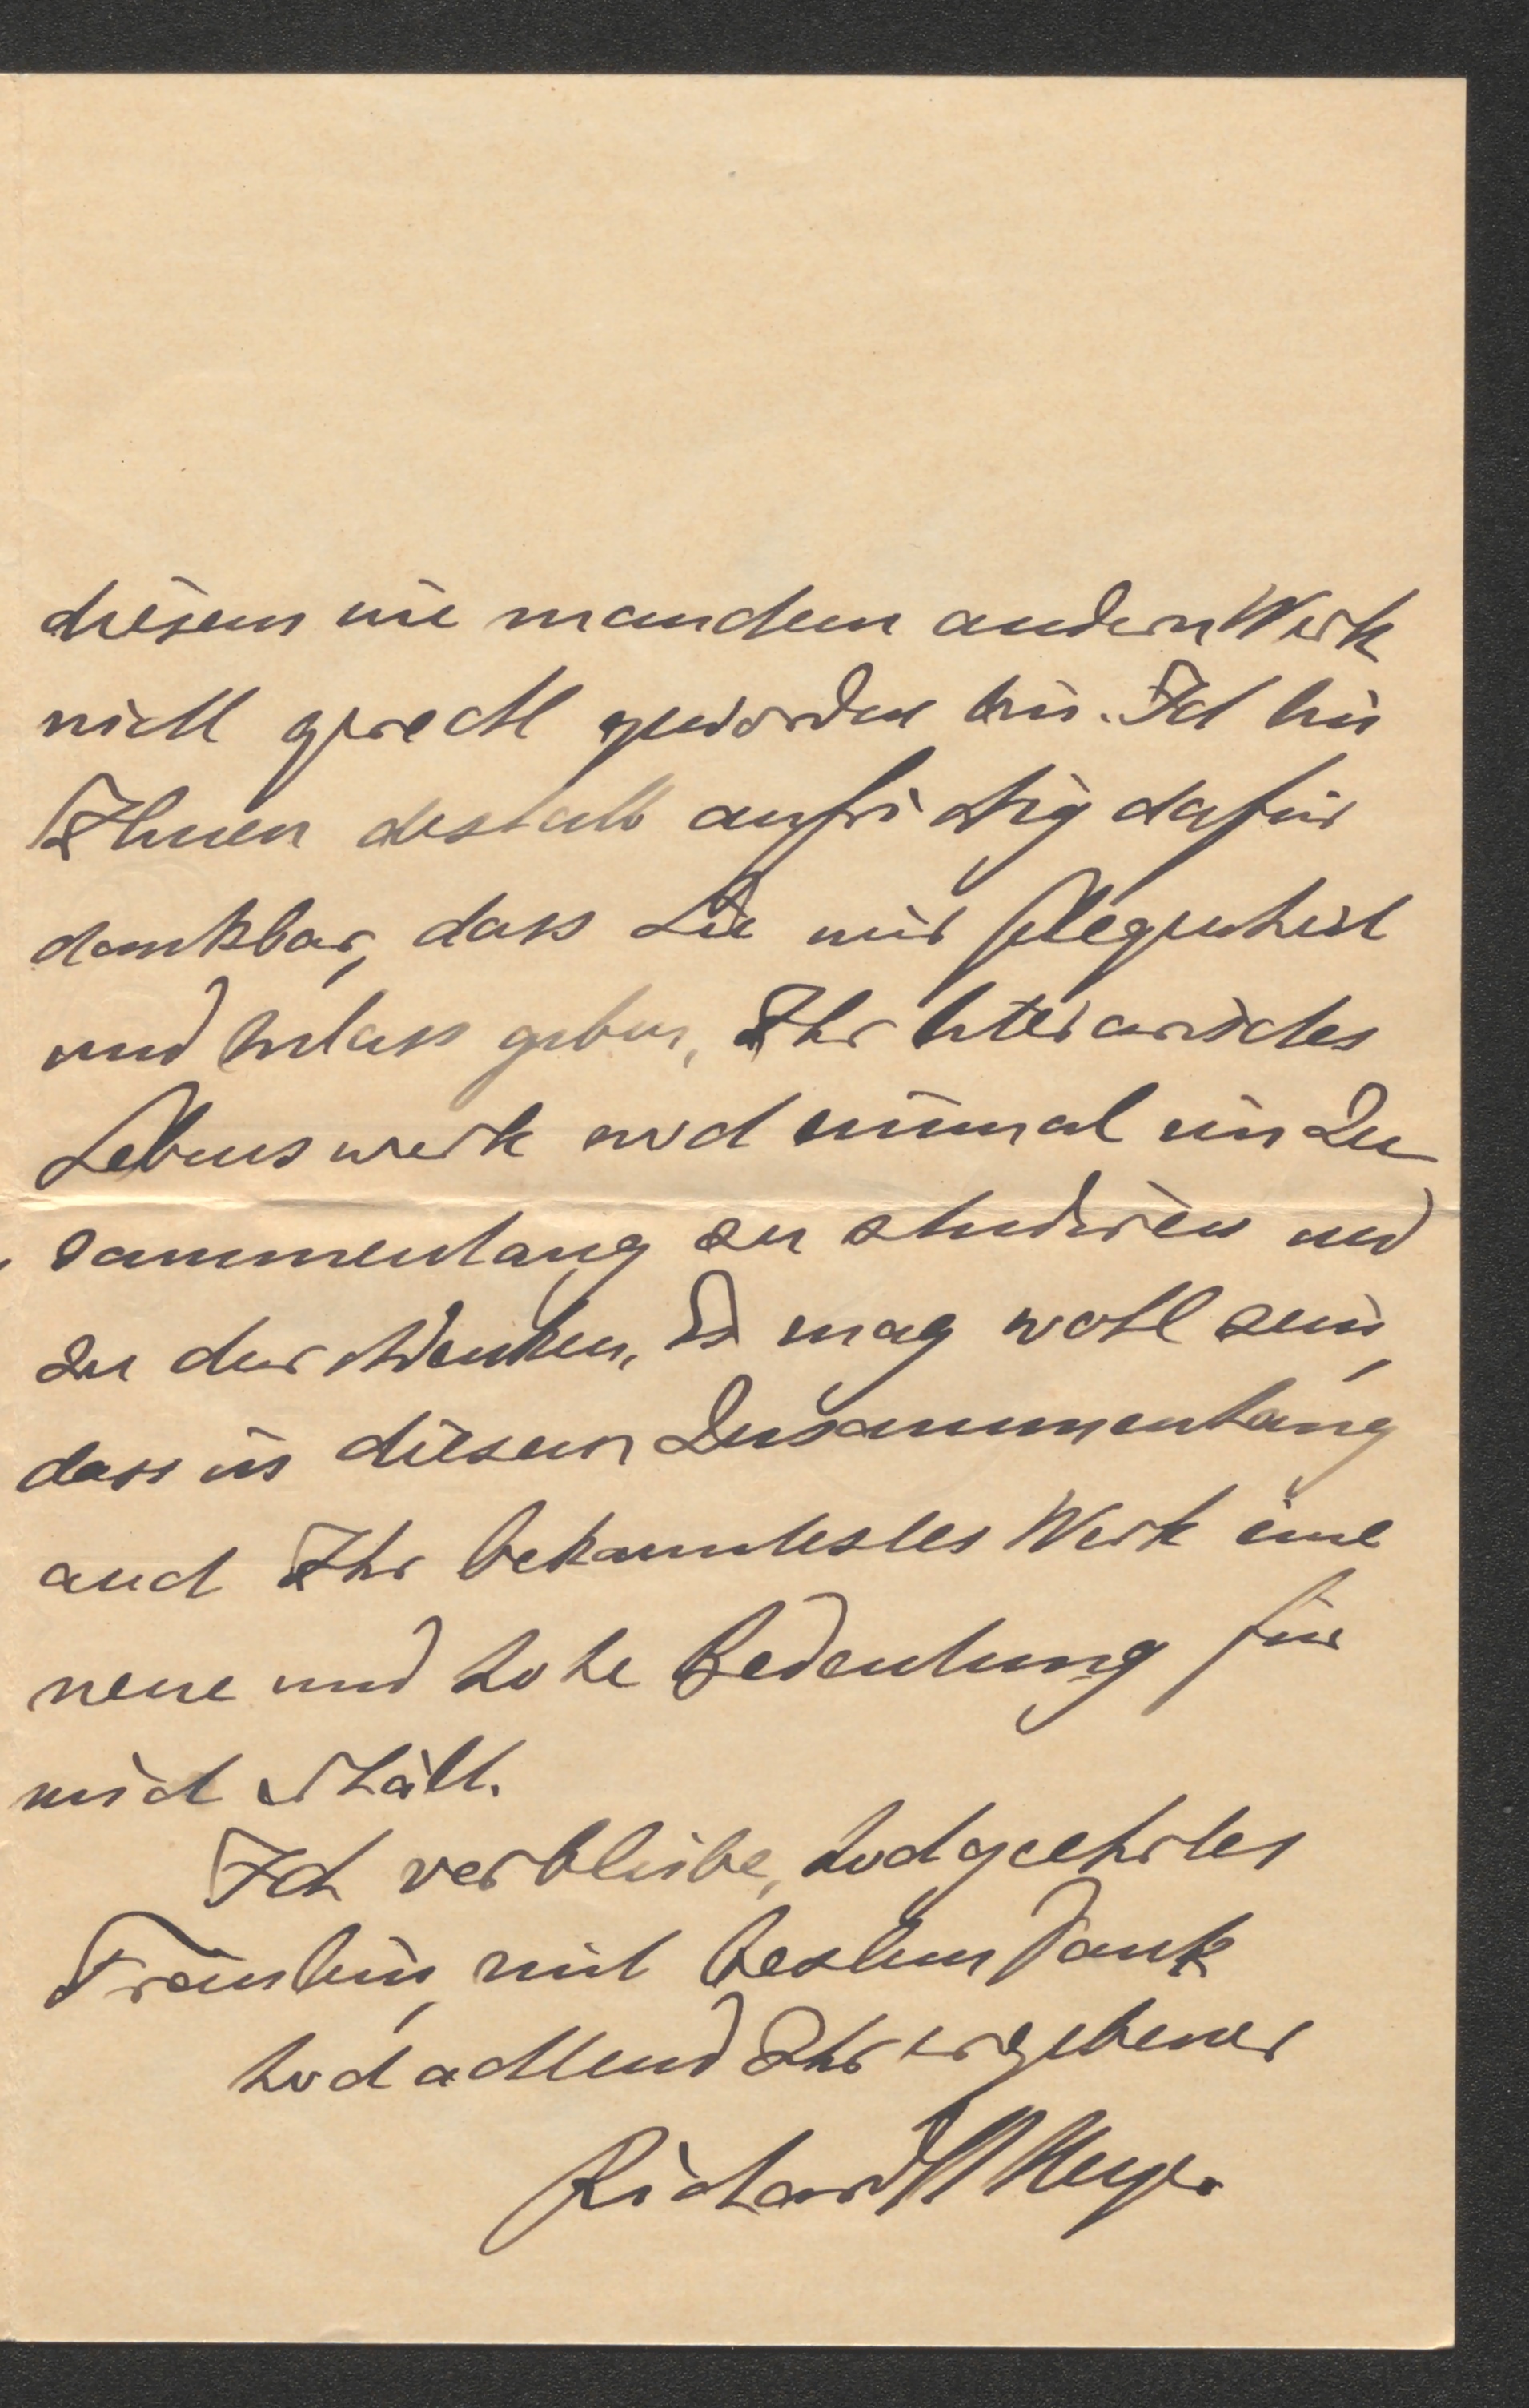 diesem wie manchem andern Werk
nicht gerecht geworden bin. Ich bin
Ihnen deshalb aufrichtig dafür
dankbar, dass Sie mir Gelegenheit
und Anlass geben, Ihr literarisches
Lebenswerk noch einmal im Zu
sammenhang zu studiren und
zu durchdenken. Es mag wohl sein,
dass in diesem Zusammenhang
auch Ihr bekanntestes Werk eine
neue und hohe Bedeutung für
mich erhält.
Ich verbleibe, hochgeehrtes
Fräulein, mit bestem Dank
hochachtend Ihr ergebener
Richard M Meyer